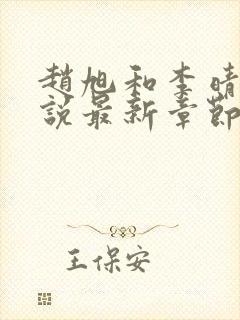 趙旭和李晴
說最新章節
王保安